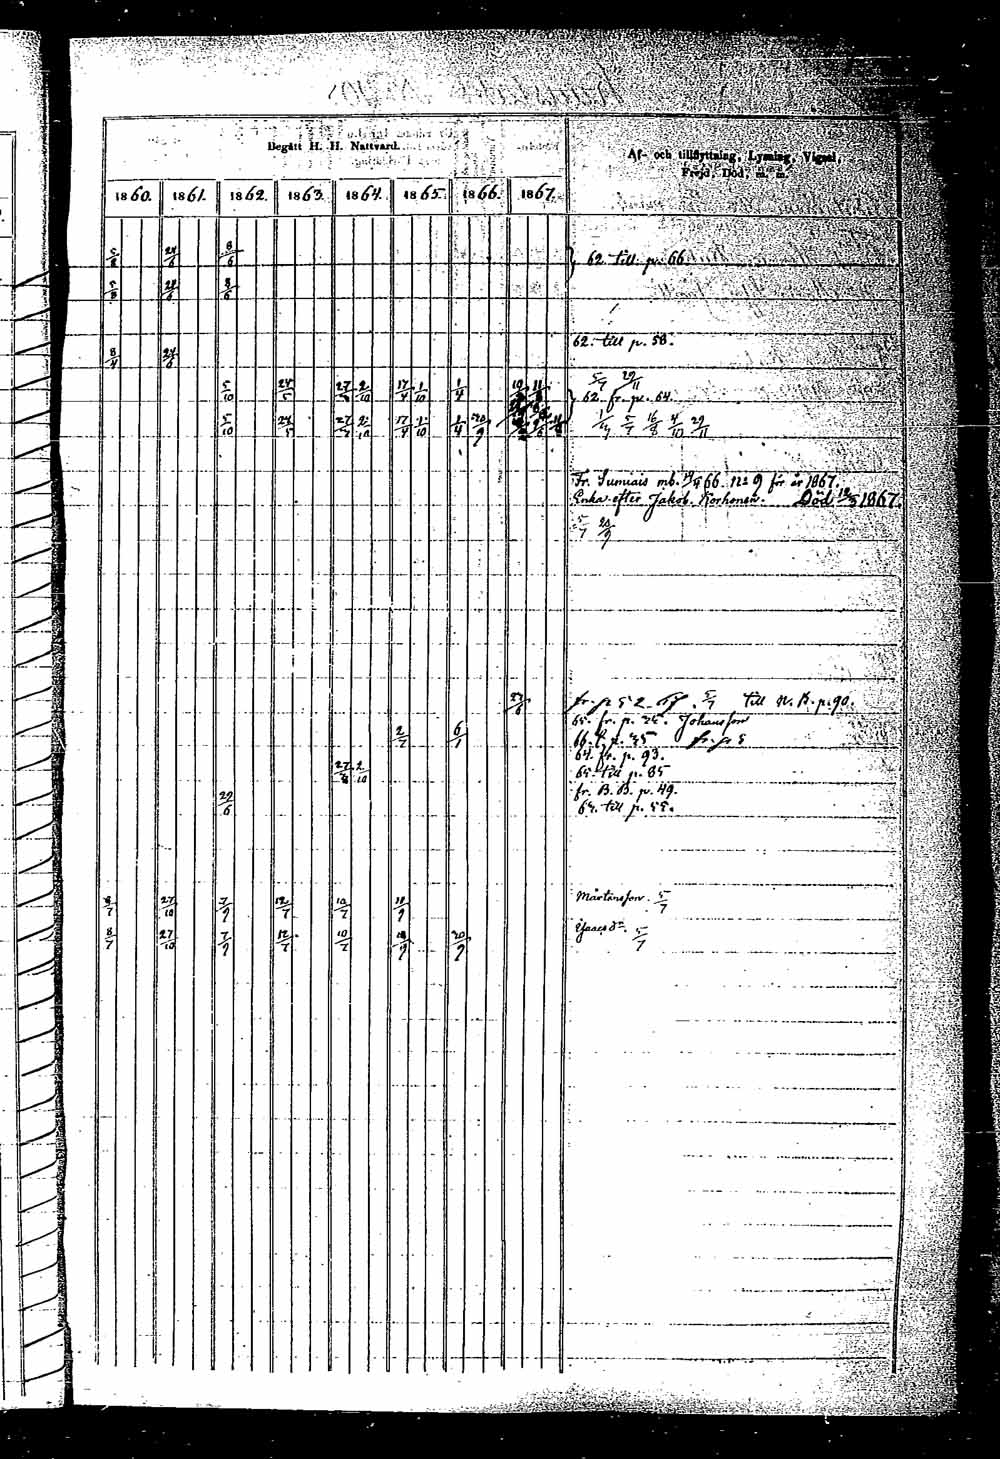 Begått H. H. Nattvard.
Af- och tillflyttning, Lysning, Vigsel,
Frejd, Död, m. m.
1860. 1861. 1862. 1863. 1864. 1865. 1866. 1867.
5/8 24/6 8/6 62. till p. 66.
5/8 24/6 8/6
62. till p. 58.
8/4 24/6
5/7 29/11
5/10 24/5 27/3 2/10 17/4 1/10 1/4 62. fr. p. 64.
5/10 24/5 27/3 2/10 17/4 1/10 1/4 20/9 5/7 16/8 4/10 29/11
Fr. Sumiais mb. 66. No 9 för år 1867.
Enka efter Jakob Korhonen. Död 1867.
5/7 20/9
23/6 fr. p 52 5/7 till N. K. p. 90.
65. fr. p. Johansson
2/7 6/1 66. p. 35 fr. p 5
64. fr. p. 93.
27/3 2/10 65. till p. 85
fr. B. B. p. 49.
29/6 63. till p. 55.
8/7 27/10 7/9 12/7 10/7 18/9 Mårtensson. 5/7
8/7 27/10 7/9 12/7 10/7 18/9 20/9 5/7